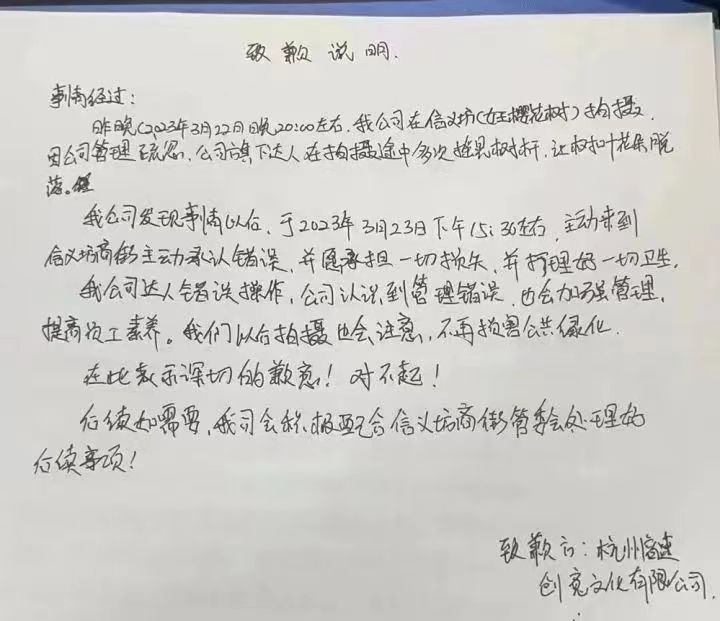 致歉说明.
事情经过:
昨晚(2023年3月22日晚20:00左右,我公司在信义坊(女王樱花树)拍摄,
因公司管理疏忽,公司旗下达人在拍摄途中多次摇晃树杆,让树叶花朵脱
落。
我公司发现事情以后,于2023年3月23日下午15:30左右,主动来到
信义坊商街主动承认错误,并愿承担一切损失,并打理好一切卫生,
我公司达人错误操作,公司认识到管理错误,也会加强管理,
提高员工素养。我们以后拍摄也会注意,不再损害公共绿化.
在此表示深切的歉意!对不起!
后续如需要,我司会积极配合信义坊商街管委会处理好
后续事项!
致歉方:杭州
创意文化有限公司.